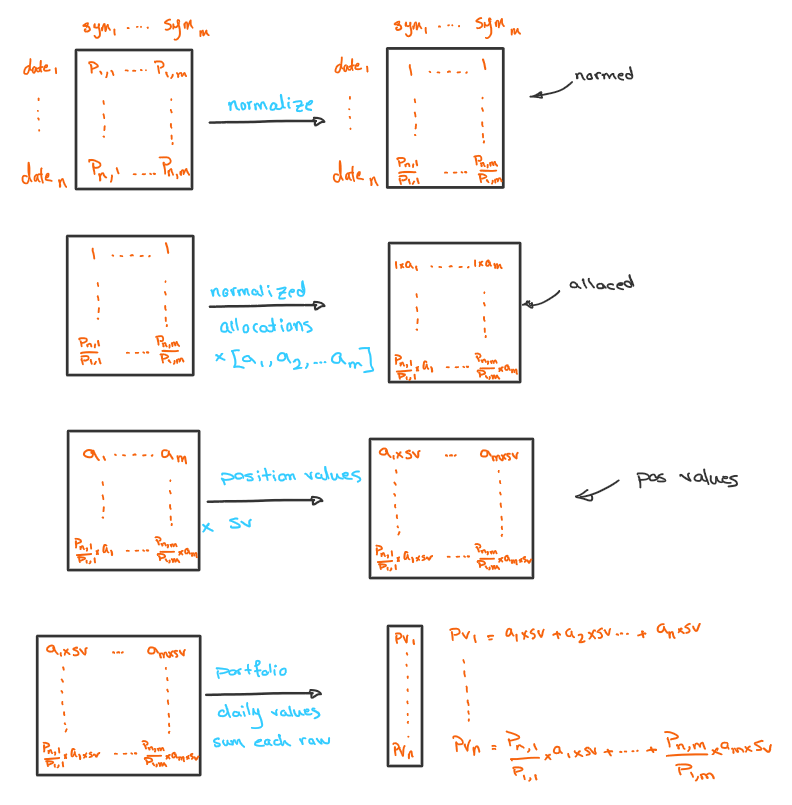 sym₁ .... sym m
date₁
P₁,₁ ..... P₁,m
date n
Pn,1 ..... Pn,m
normalize
sym₁ .... sym m
date₁
1 ...... 1
date n
Pn,1/P1,1 .... Pn,m/P1,m
normed
1 ...... 1
Pn,1/P1,1 .... Pn,m/P1,m
normalized
allocations
× [a₁, a₂, ... am]
1×a₁ ...... 1×am
Pn,1/P1,1 ×a₁ .... Pn,m/P1,m ×am
allaced
a₁ ...... am
Pn,1/P1,1 ×a₁ .... Pn,m/P1,m ×am
position values
× sv
a₁×sv ... am×sv
Pn,1/P1,1 ×a₁×sv .... Pn,m/P1,m ×am×sv
pos values
a₁×sv ... am×sv
Pn,1/P1,1 ×a₁×sv .... Pn,m/P1,m ×am×sv
portfolio
daily values
sum each raw
PV₁
PVn
PV₁ = a₁×sv + a₂×sv ... + an×sv
PVn = Pn,1/P1,1 ×a₁×sv + .... + Pn,m/P1,m ×am×sv